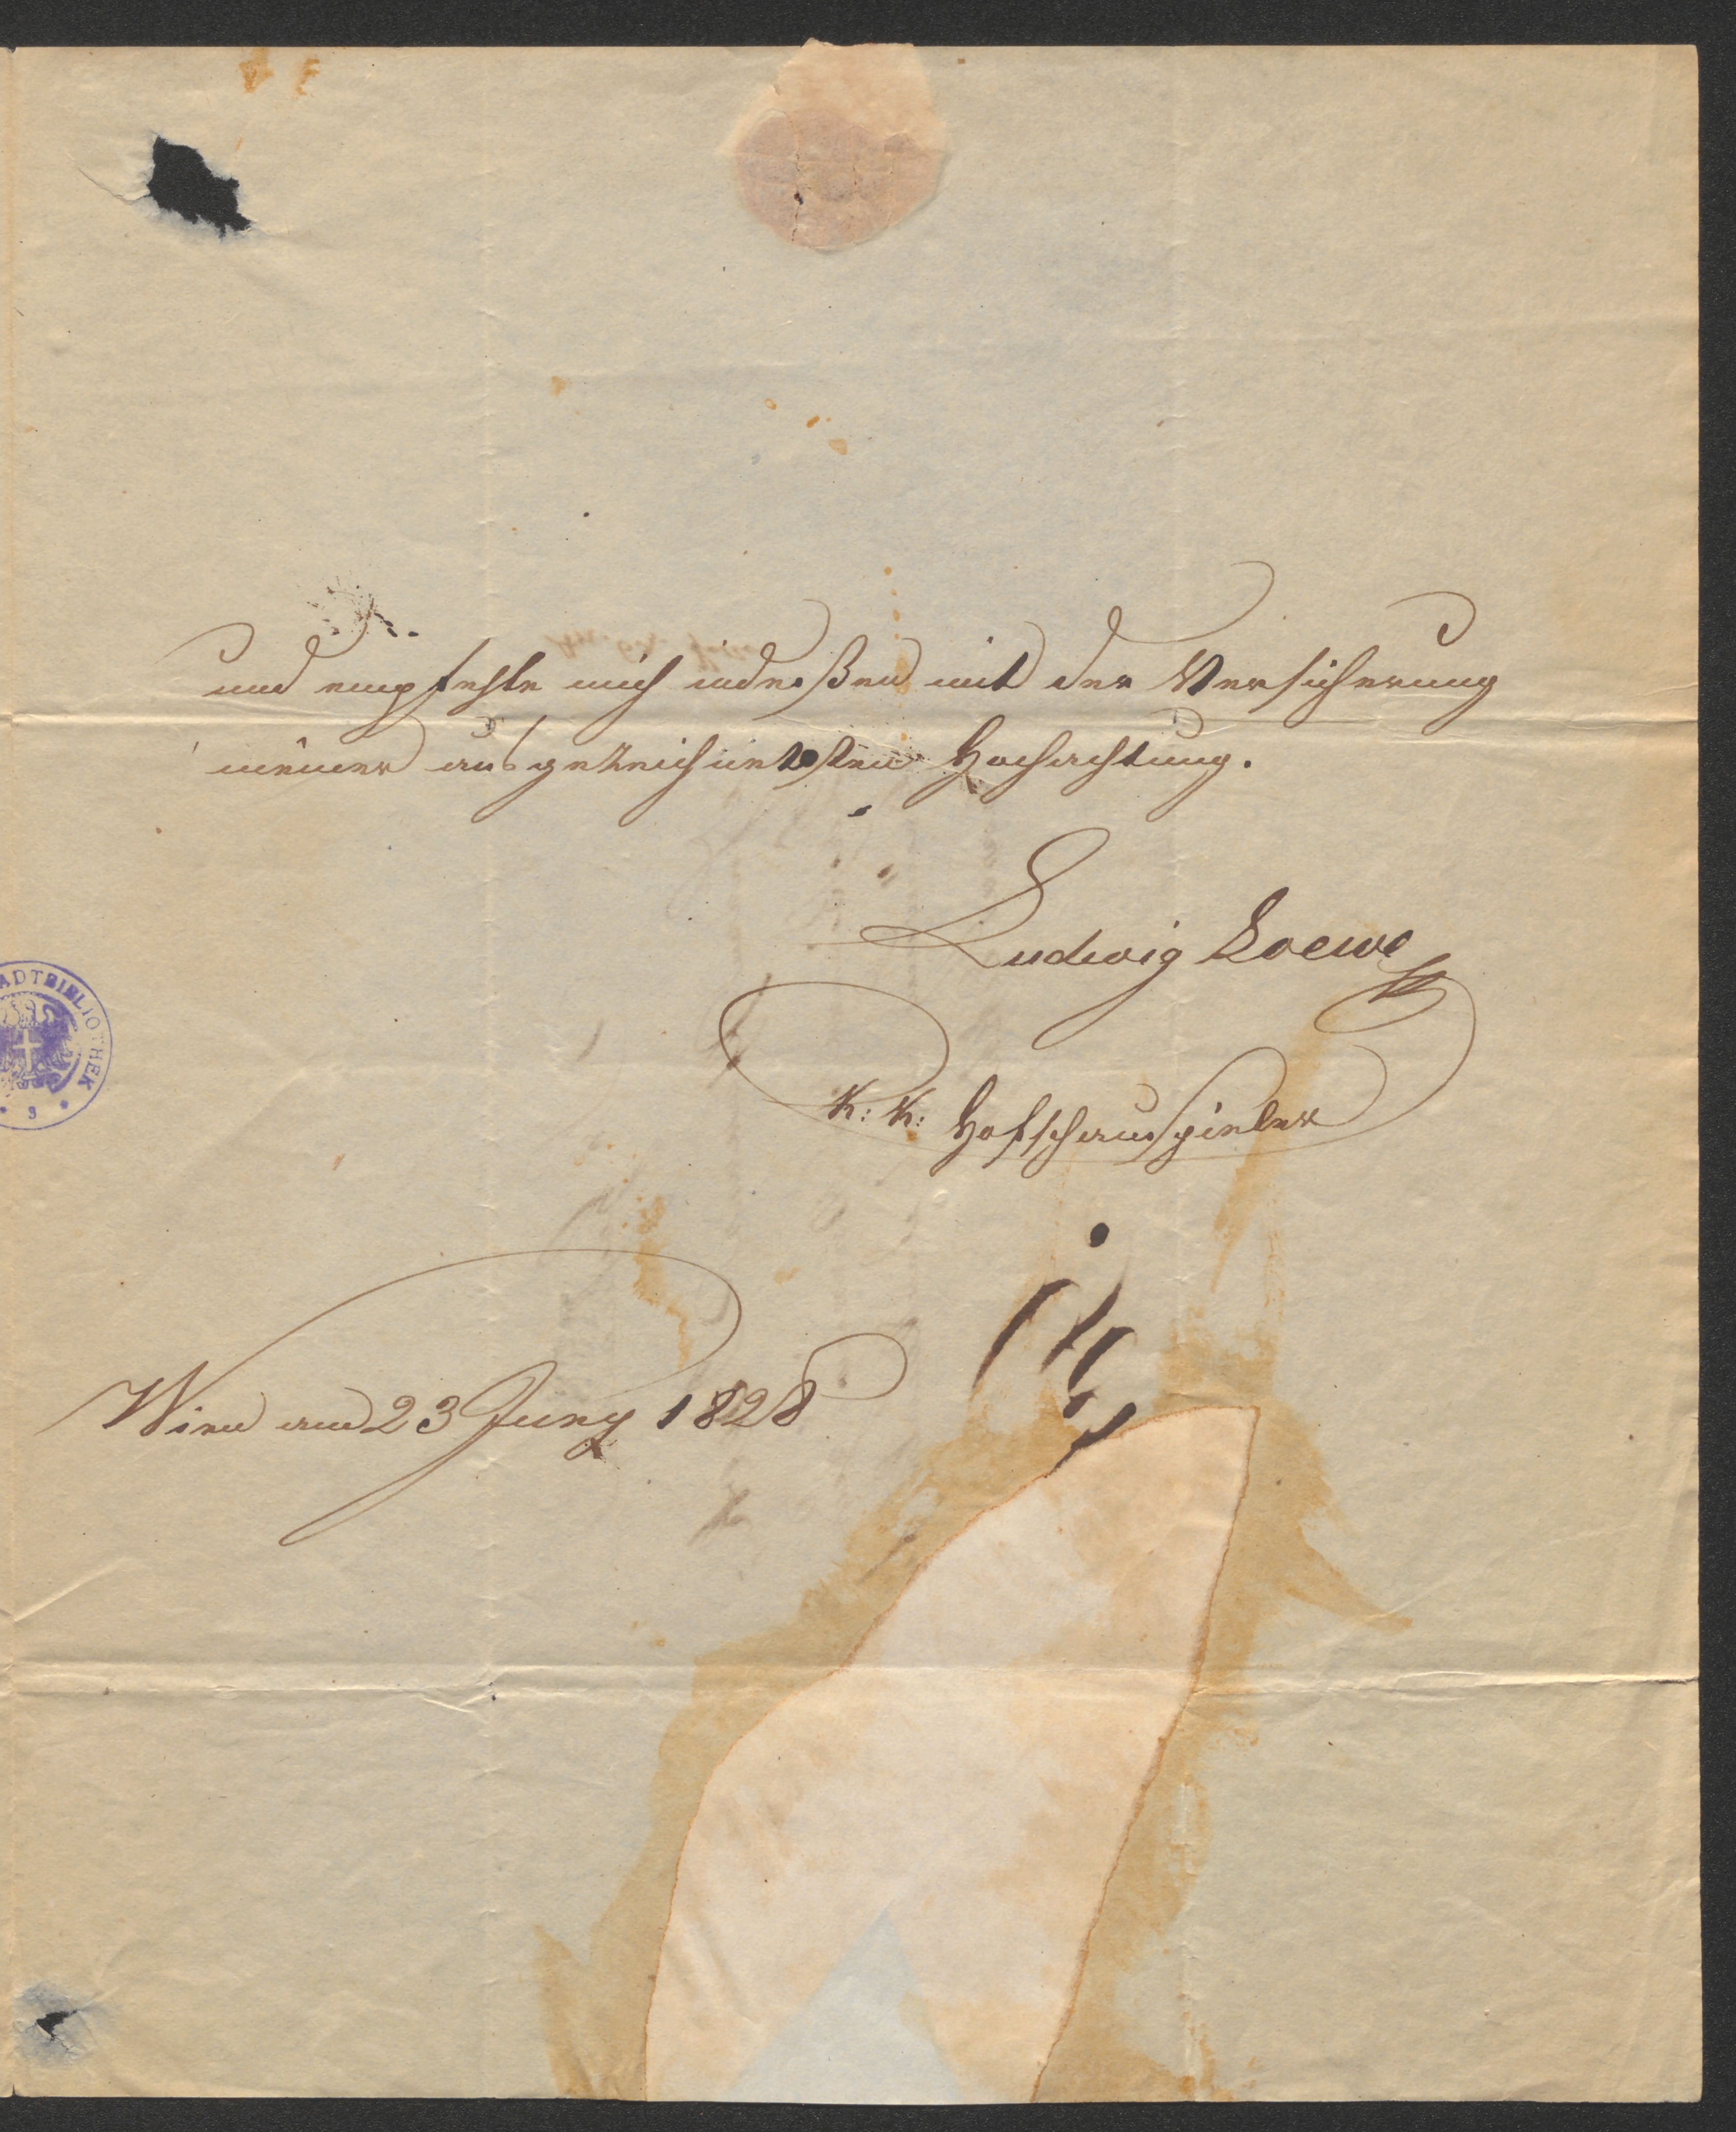 und empfehle mich indeßen mit der Versicherung
meiner ausgezeichnetsten Hochachtung.
Ludwig Loewe
K: K: Hofschauspieler
Wien am 23 Juny 1828
ADTBIBLIOTHEK
3